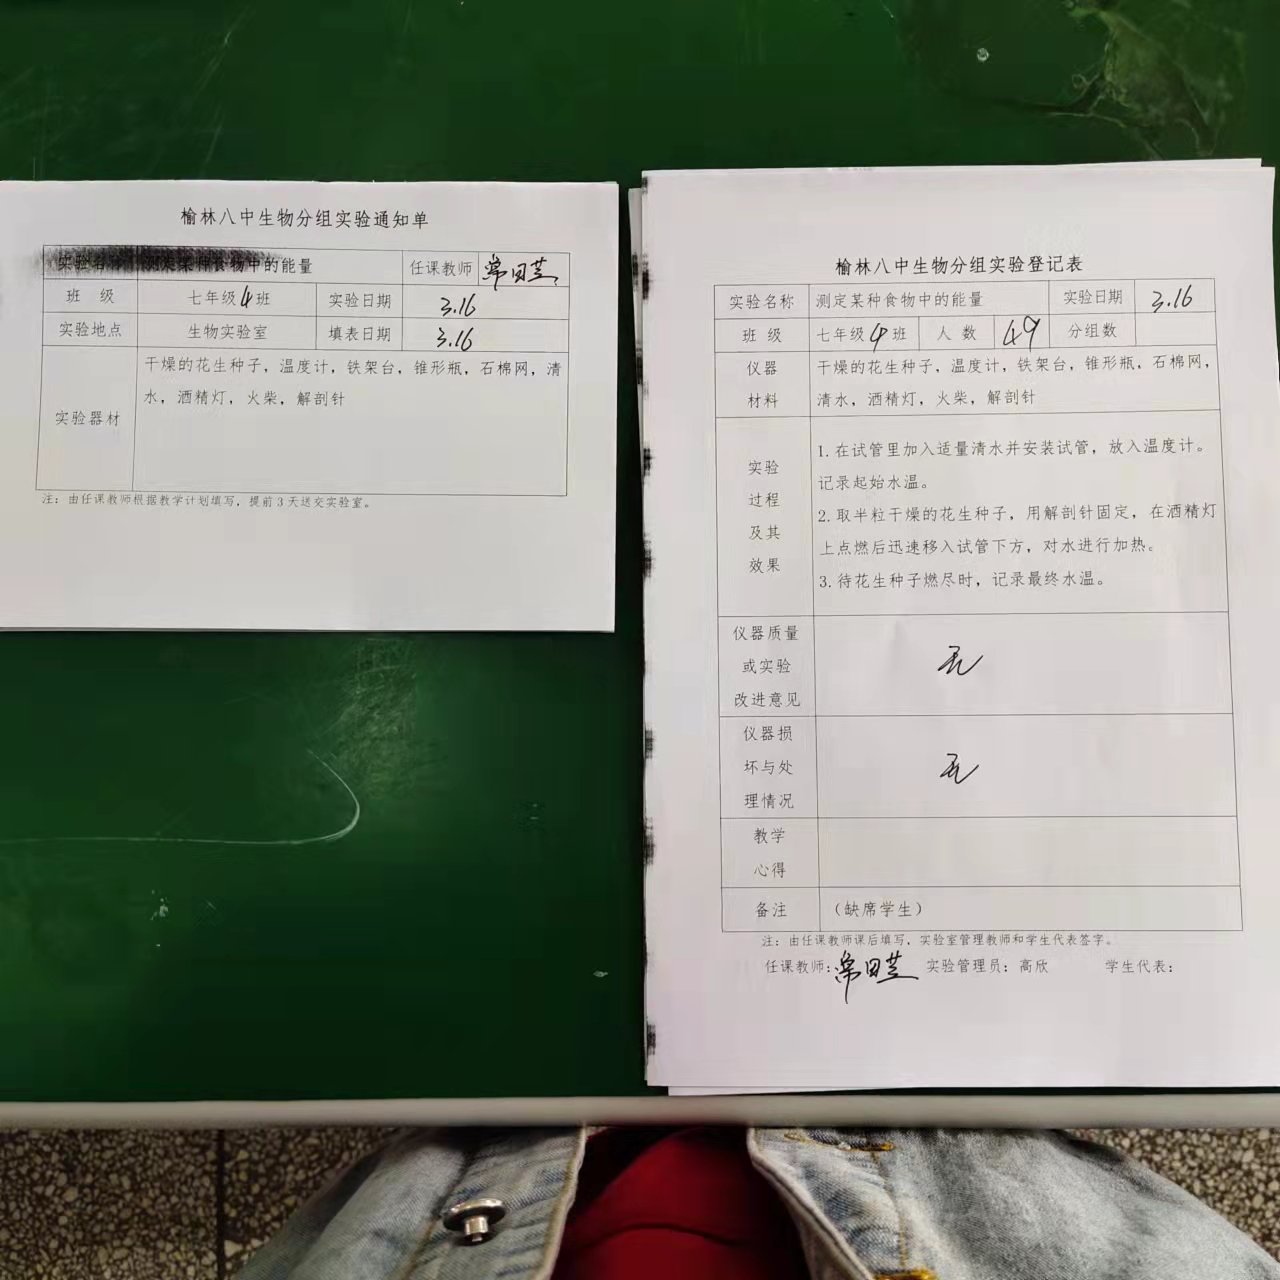 榆林八中生物分组实验通知单
实验名称 测定某种食物中的能量 任课教师
班 级 七年级4班 实验日期 3.16
实验地点 生物实验室 填表日期 3.16
实验器材
干燥的花生种子，温度计，铁架台，锥形瓶，石棉网，清
水，酒精灯，火柴，解剖针
注：由任课教师根据教学计划填写，提前3天送交实验室。
榆林八中生物分组实验登记表
实验名称 测定某种食物中的能量 实验日期 3.16
班 级 七年级4班 人 数 49 分组数
仪器
材料
干燥的花生种子，温度计，铁架台，锥形瓶，石棉网，
清水，酒精灯，火柴，解剖针
实验
过程
及其
效果
1.在试管里加入适量清水并安装试管，放入温度计。
记录起始水温。
2.取半粒干燥的花生种子，用解剖针固定，在酒精灯
上点燃后迅速移入试管下方，对水进行加热。
3.待花生种子燃尽时，记录最终水温。
仪器质量
或实验
改进意见
无
仪器损
坏与处
理情况
无
教学
心得
备注 （缺席学生）
注：由任课教师课后填写，实验室管理教师和学生代表签字。
任课教师： 实验管理员：高欣 学生代表：